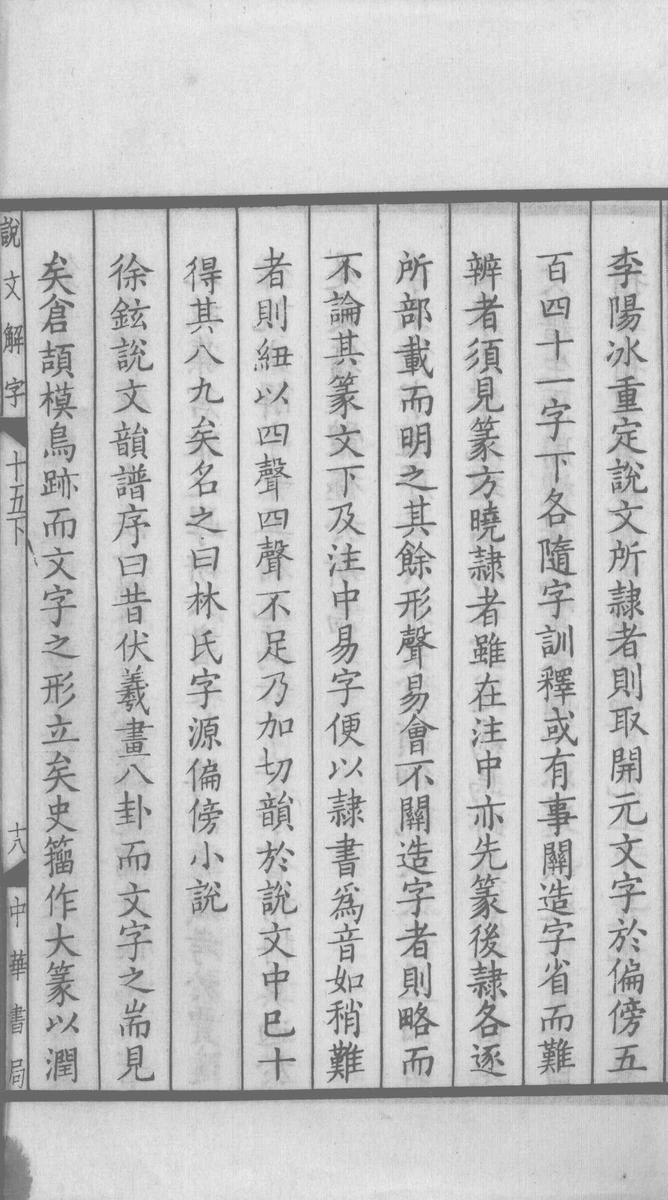 李陽冰重定說文所隷者則取開元文字於偏傍五
百四十一字下各隨字訓釋或有事關造字省而難
辨者須見篆方曉隷者雖在注中亦先篆後隷各逐
所部載而明之其餘形聲易會不關造字者則略而
不論其篆文下及注中易字便以隷書爲音如稍難
者則紐以四聲四聲不足乃加切韻於說文中巳十
得其八九矣名之曰林氏字源偏傍小說
徐鉉說文韻譜序曰昔伏羲畫八卦而文字之耑見
矣倉頡模鳥跡而文字之形立矣史籒作大篆以潤
說文解字 十五下 十八 中華書局